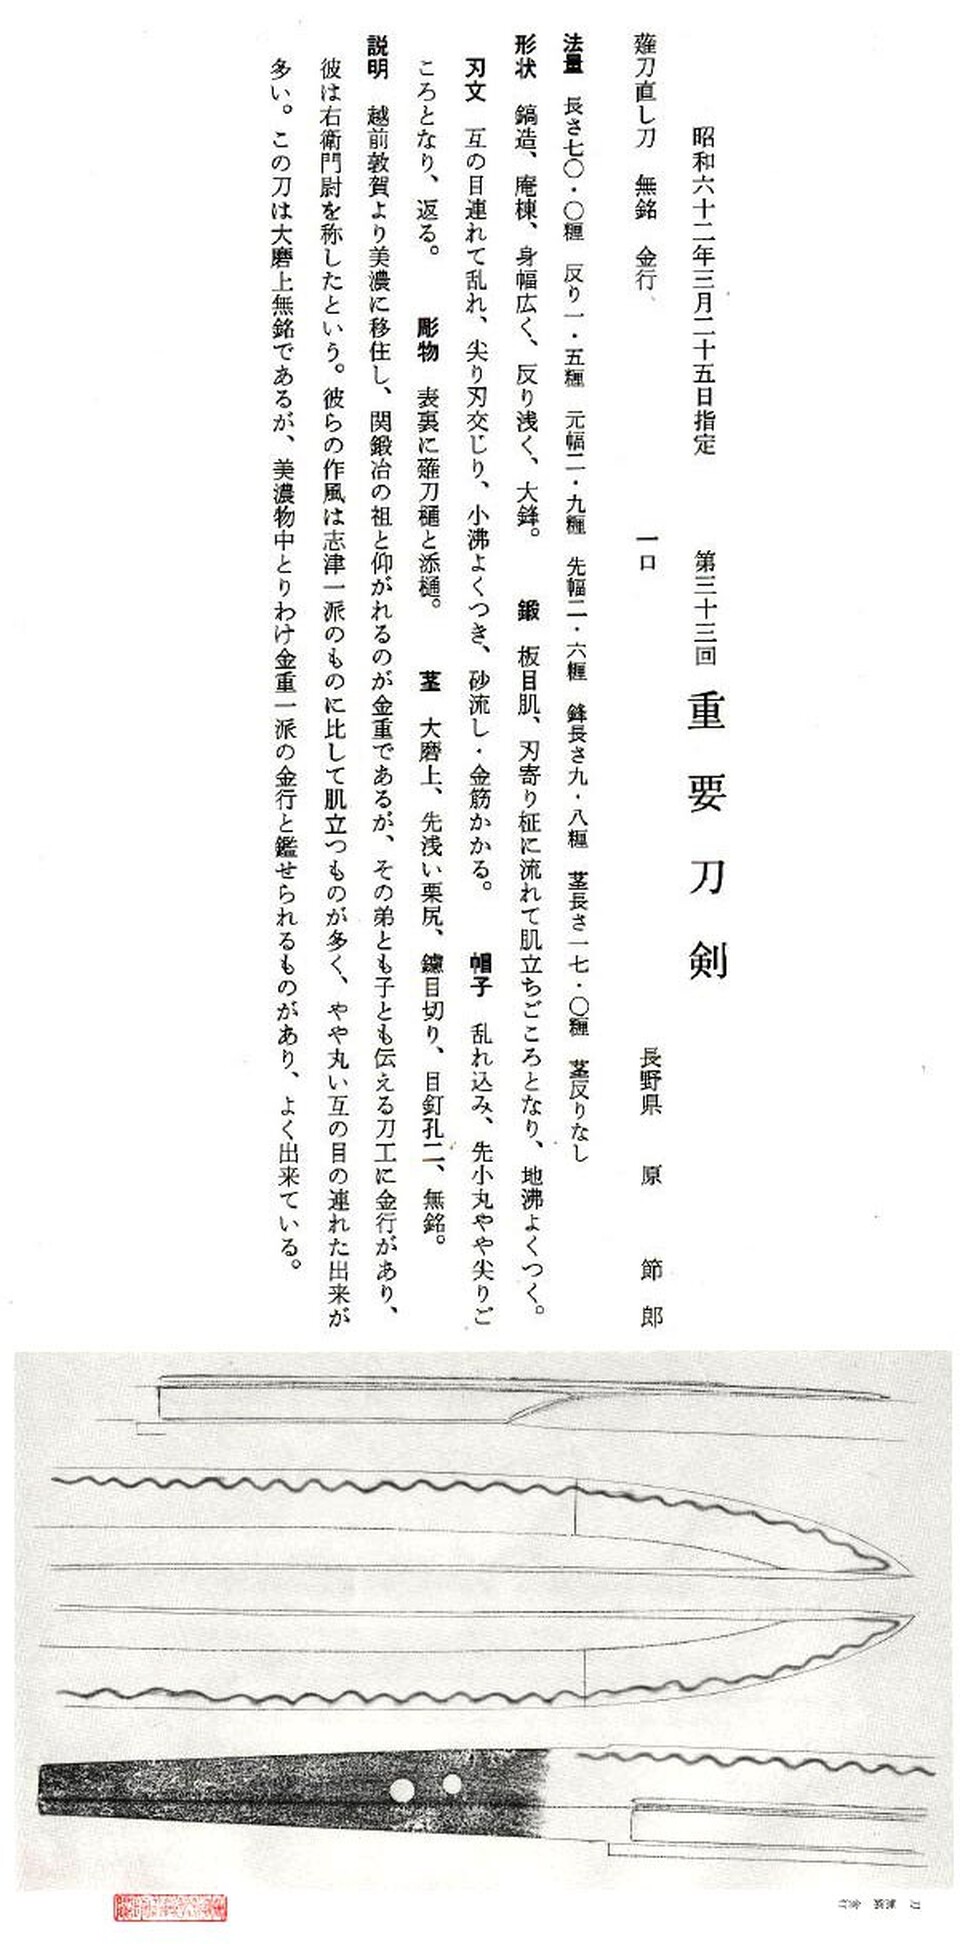 昭和六十二年三月二十五日指定　第三十三回　重要刀剣
薙刀直し刀　無銘　金行　一口　長野県　原　節郎
法量　長さ七〇・〇糎　反り一・五糎　元幅二・九糎　先幅二・六糎　鋒長さ九・八糎　茎長さ一七・〇糎　茎反りなし
形状　鎬造、庵棟、身幅広く、反り浅く、大鋒。　鍛　板目肌、刃寄り柾に流れて肌立ちごころとなり、地沸よくつく。
刃文　互の目連れて乱れ、尖り刃交じり、小沸よくつき、砂流し・金筋かかる。　帽子　乱れ込み、先小丸やや尖りご
ころとなり、返る。　彫物　表裏に薙刀樋と添樋。　茎　大磨上、先浅い栗尻、鑢目切り、目釘孔二、無銘。
説明　越前敦賀より美濃に移住し、関鍛冶の祖と仰がれるのが金重であるが、その弟とも子とも伝える刀工に金行があり、
彼は右衛門尉を称したという。彼らの作風は志津一派のものに比して肌立つものが多く、やや丸い互の目の連れた出来が
多い。この刀は大磨上無銘であるが、美濃物中とりわけ金重一派の金行と鑑せられるものがあり、よく出来ている。
刀　無銘　金行